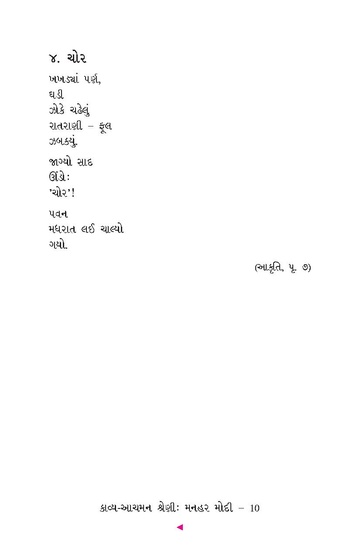 ૪. ચોર
ખખડ્યાં પર્ણ,
ઘડી
ઝોકે ચઢેલું
રાતરાણી – ફૂલ
ઝબક્યું.
જાગ્યો સાદ
ઊંડોઃ
'ચોર'!
પવન
મધરાત લઈ ચાલ્યો
ગયો.
(આકૃતિ, પૃ. ૭)
કાવ્ય-આચમન શ્રેણીઃ મનહર મોદી – 10